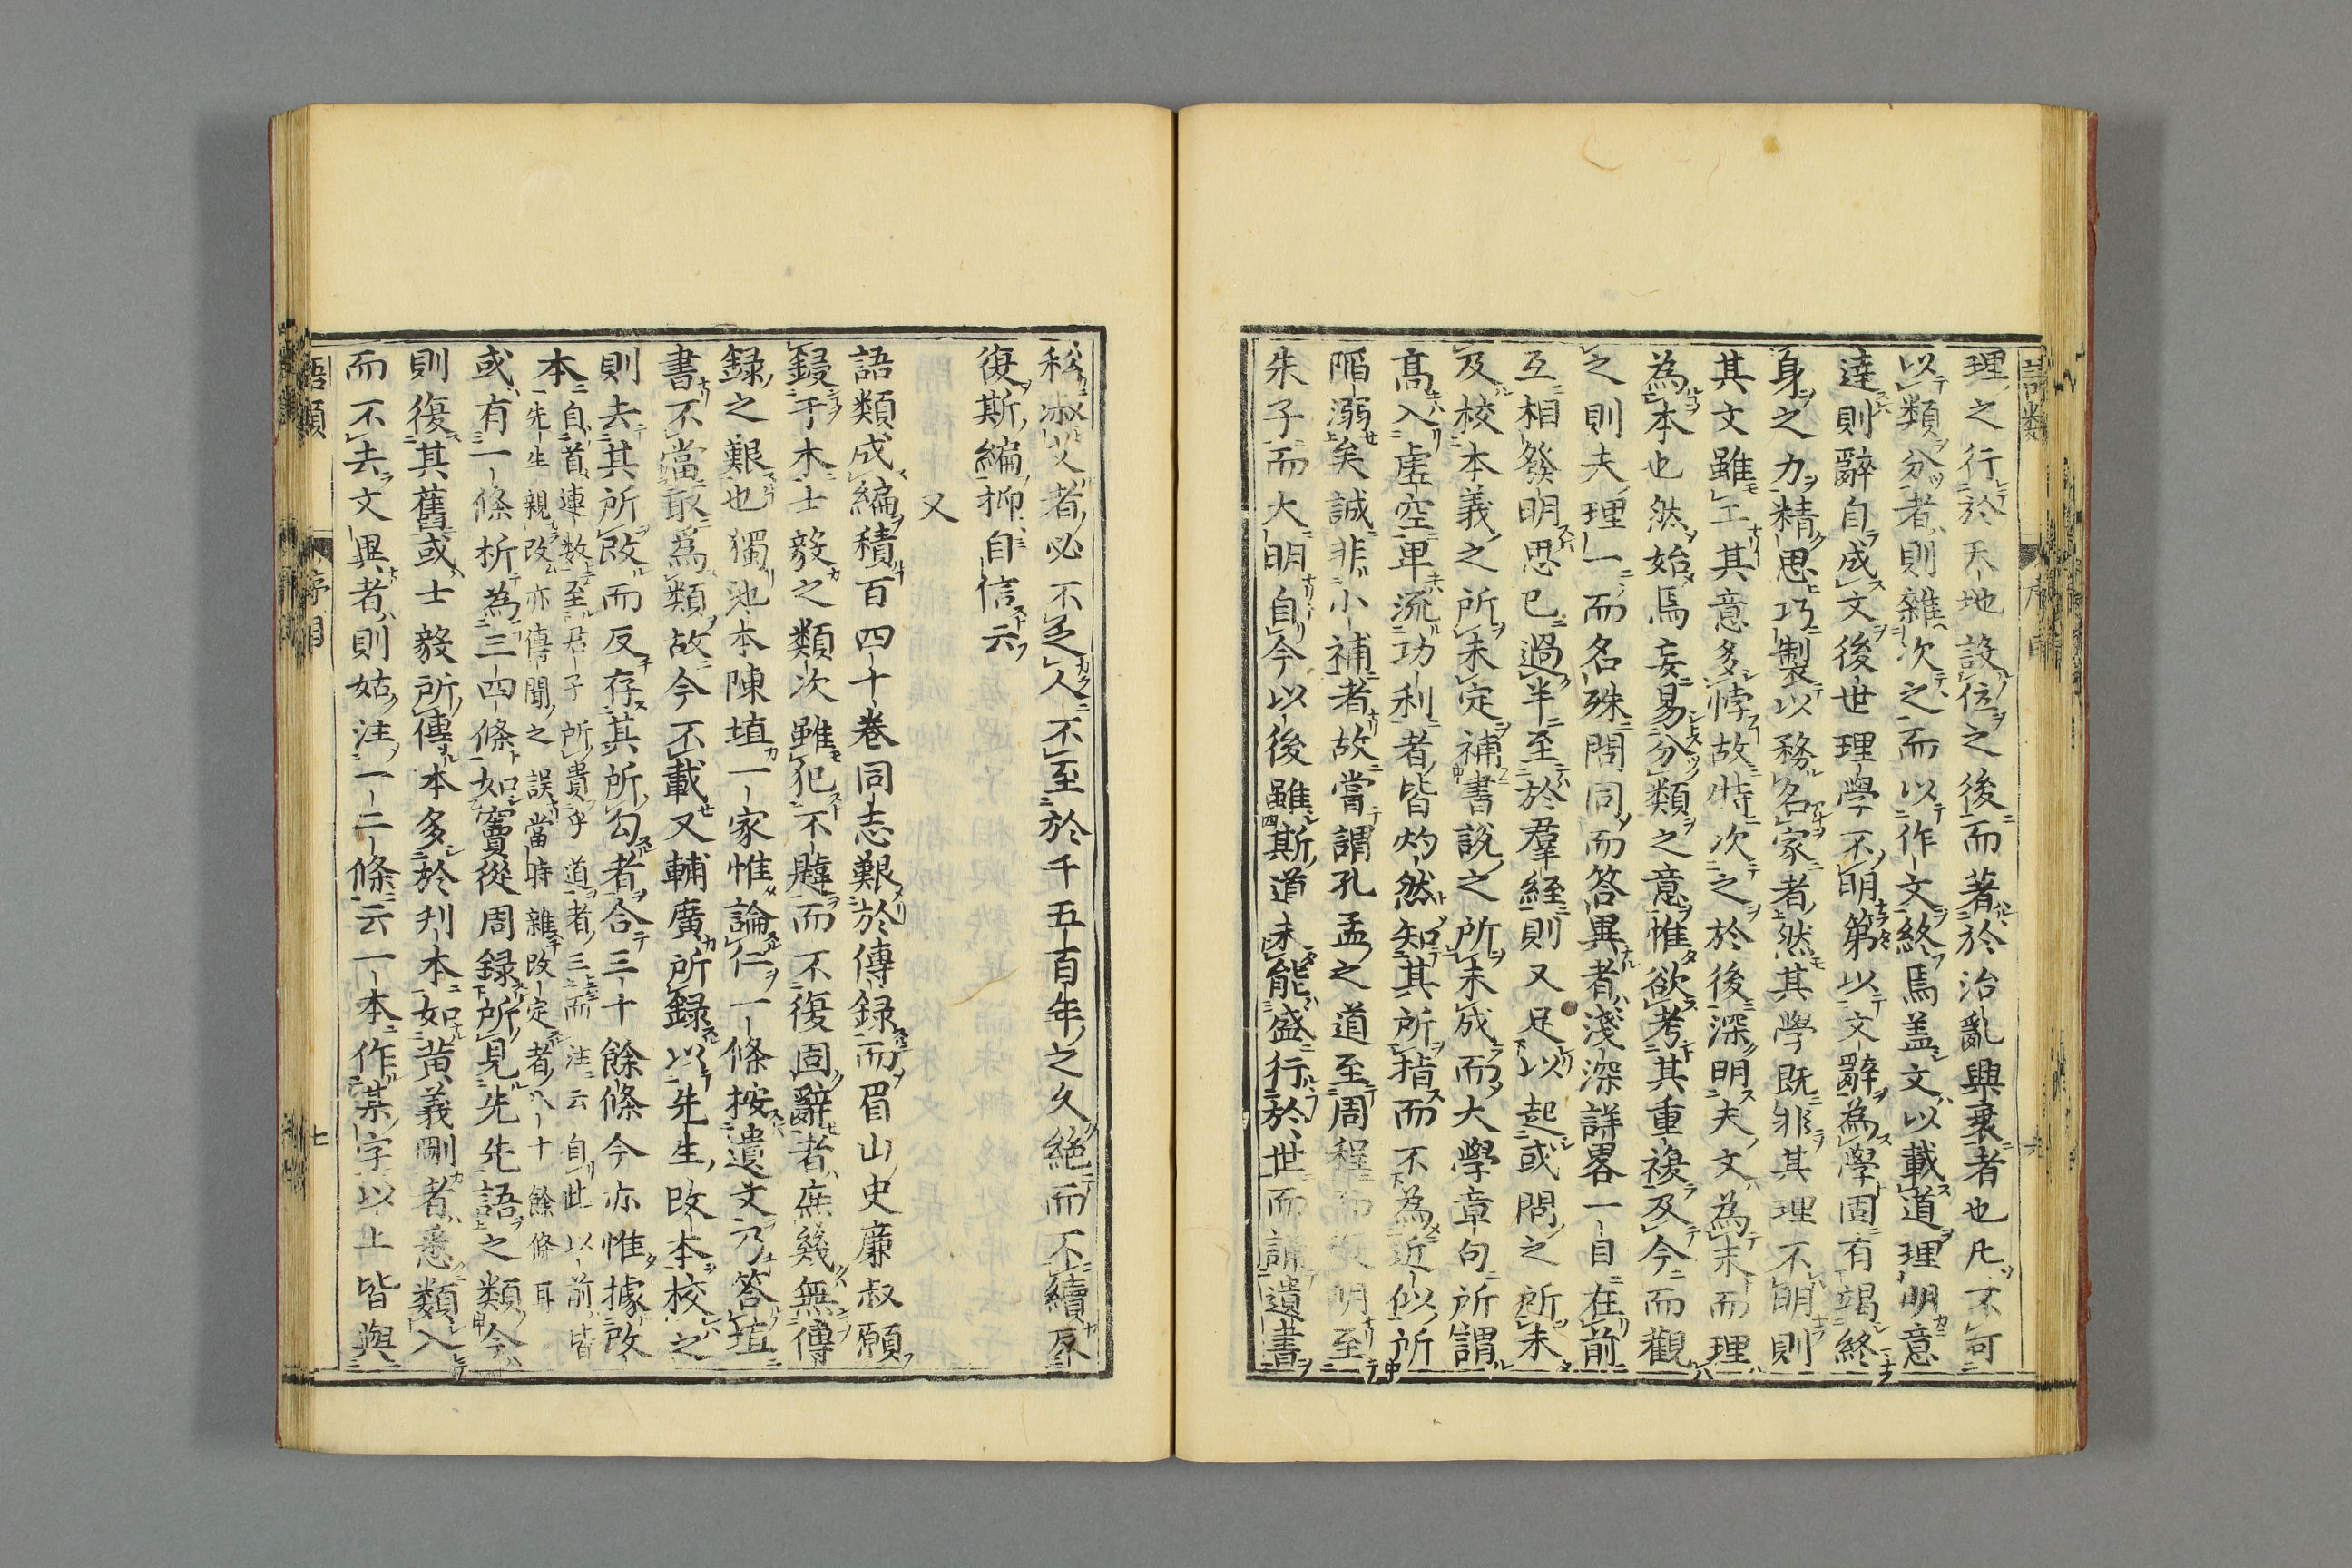 理之行於天地設位之後而著於治亂興衰者也凡不可
以類分者則雜次之而以作文終焉盖文以載道理明意
達則辭自成文後世理學不明第以文辭為學固有竭終
身之力精思巧製以務名家者然其學既非其理不明則
其文雖工其意多悖故特次之於後深明夫文為末而理
為本也然始焉妄易分類之意惟欲考其重複及今而觀
之則夫理一而名殊問同而答異者淺深詳畧一目在前
互相發明思已過半至於羣經則又足以起或問之所未
及校本義之所未定補書說之所未成而大學章句所謂
高入虛空卑流功利者皆灼然知其所指而不為近似所
陷溺矣誠非小補者故嘗謂孔孟之道至周程而復明至
朱子而大明自今以後雖斯道未能盛行於世而誦遺書
私淑艾者必不乏人不至於千五百年之久絕而不續反
復斯編抑自信云
又
語類成編積百四十卷同志艱於傳録而眉山史廉叔願
鋟于木士毅之類次雖犯不韙而不復固辭者庶幾無傳
録之艱也獨池本陳埴一家惟論仁一條按遺文乃答埴
書不當取為類故今不載又輔廣所録以先生改本校之
則去其所改而反存其所勾者合三十餘條今亦惟據改
本
自首連数至君子所貴乎道者三而注云自此以前皆
先生親改亦傳聞之誤當時雜改定者八十餘條耳
或有一條析為三四條如竇從周録所見先生語之類今
則復其舊或士毅所傳本多於刋本如黄義剛者悉類入
而不去文異者則姑注一二條云一本作某字以上皆與
語類
序目
七